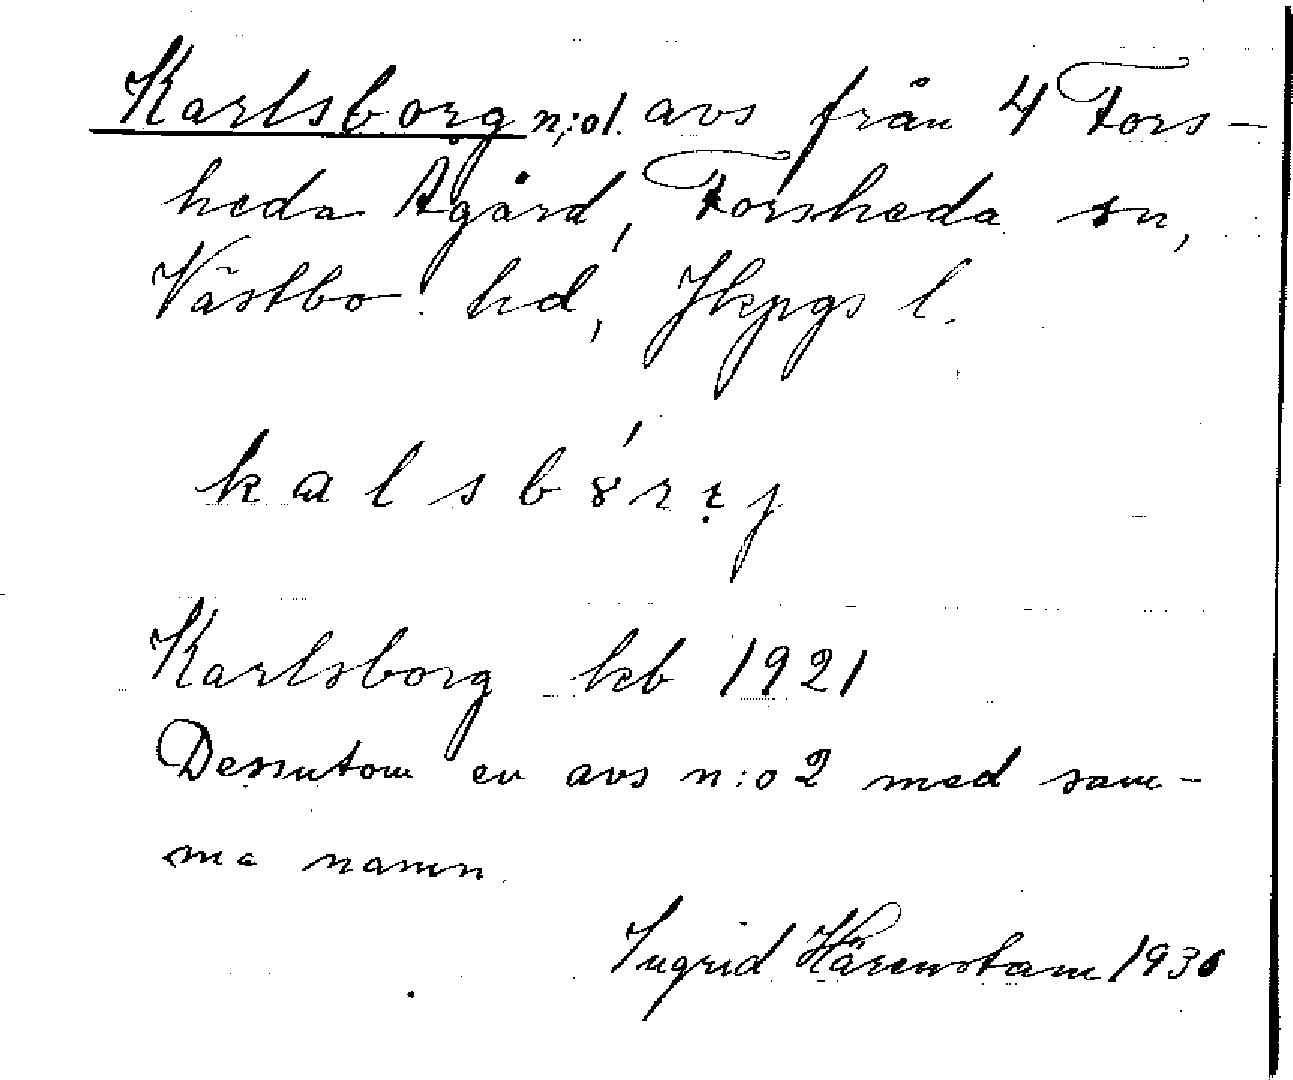 Karlsborg n:o1. avs från 4 Fors-
heda Ågård, Forsheda sn,
Västbo hd, Jkpgs l.
Karlsborg kb 1921
Dessutom en avs n:o 2 med sam-
ma namn.
Ingrid Härenstam 1930